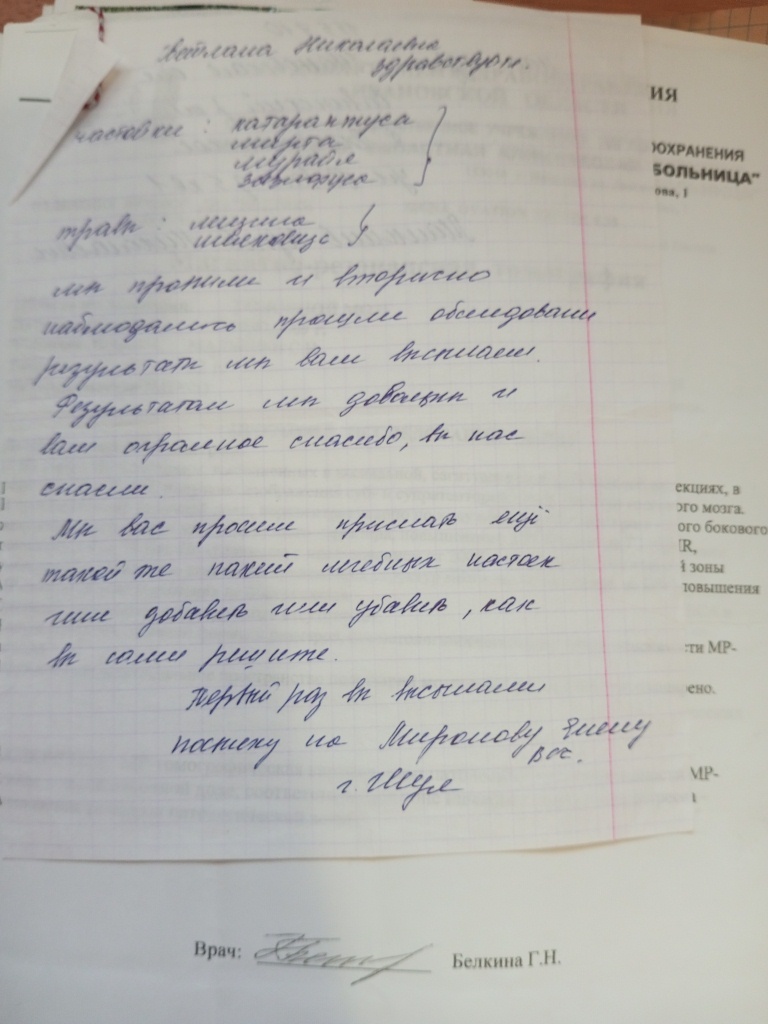 Светлана Николаевна
здравствуйте.
настойки: катарантуса
мирта
муравья
травы:
мы пропили и вторично
наблюдались прошли обследовани
результаты мы вам высылаем.
Результатам мы довольны и
вам огромное спасибо, вы нас
спасли.
Мы вас просим прислать ещё
такой же пакет лечебных настоек
или добавить или убавить, как
вы сами решите.
Первый раз вы высылали
посылку на Миронову
г. Шуя
ИЯ
ООХРАНЕНИЯ
БОЛЬНИЦА"
ова, 1
екциях, в
ого мозга.
ого бокового
IR,
й зоны
повышения
сти МР-
ено.
МР-
Врач:
Белкина Г.Н.